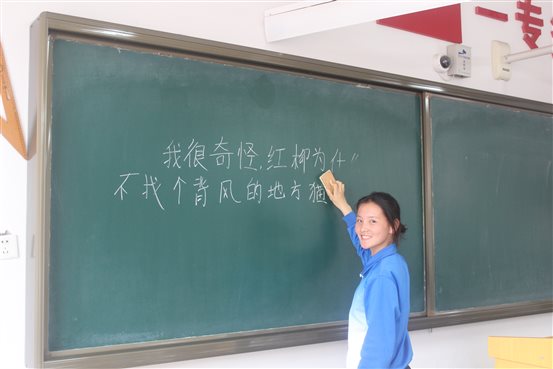 一专
我很奇怪,红柳为什
不找个背风的地方